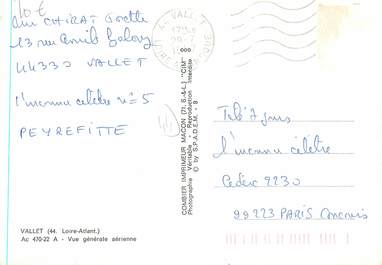 10 €
CHIRAT Josette
13 rue Emile Gabory
44330 VALLET
L'inconnu célèbre n° 5
PEYREFITTE
VALLET (44. Loire-Atlant.)
Ac 470-22 A - Vue générale aérienne
COMBIER IMPRIMEUR MACON (71, S.-&-L.) "CIM"
Photographie Véritable - Reproduction Interdite
© by S.P.A.D.E.M. - 9
44 VALLET
LOIRE ATLANTIQUE
Télé 7 jours
L'inconnu célèbre
Cedex 2230
99223 PARIS Concours